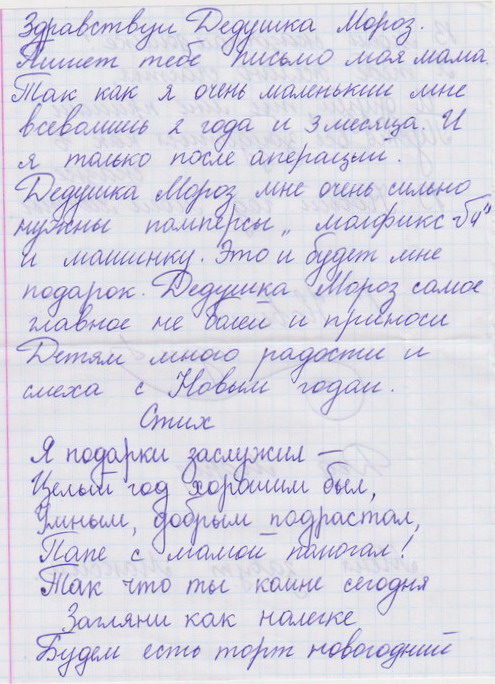 Здравствуй Дедушка Мороз.
Пишет тебе письмо моя мама.
Так как я очень маленький мне
всеволишь 2 года и 3 месяца. И
я только после аперацый.
Дедушка Мороз мне очень сильно
нужны памперсы „малфикс-5ч"
и машинку. Это и будет мне
подарок. Дедушка Мороз самое
главное не балей и приноси
Детям много радости и
смеха с Новым годам.
Стих
Я подарки заслужил —
Целый год хорошим был,
Умным, добрым подрастал,
Папе с мамой помогал!
Так что ты комне сегодня
Загляни как налегке
Будем есть торт новогодний